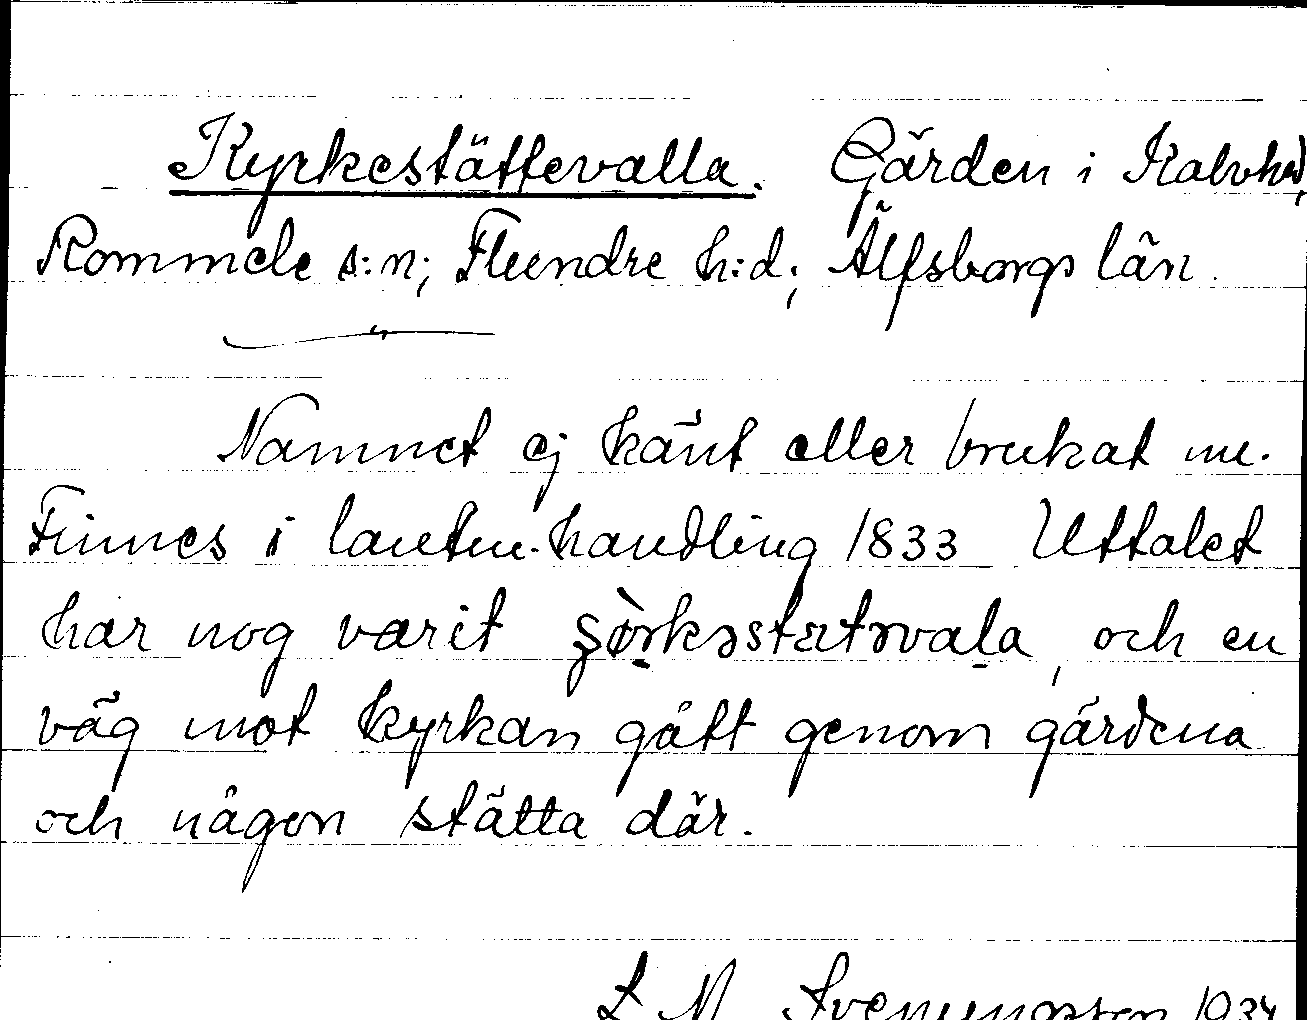 Kyrkestättevalla. Gärden i Kalvhed,
Rommele s:n; Flundre h:d; Älfsborgs län.
Namnet ej känt eller brukat nu.
Finnes i lantm.handling 1833 Uttalet
har nog varit och en
väg mot kyrkan gått genom gärdena
och någon stätta där.
L M Svenungsson 1934